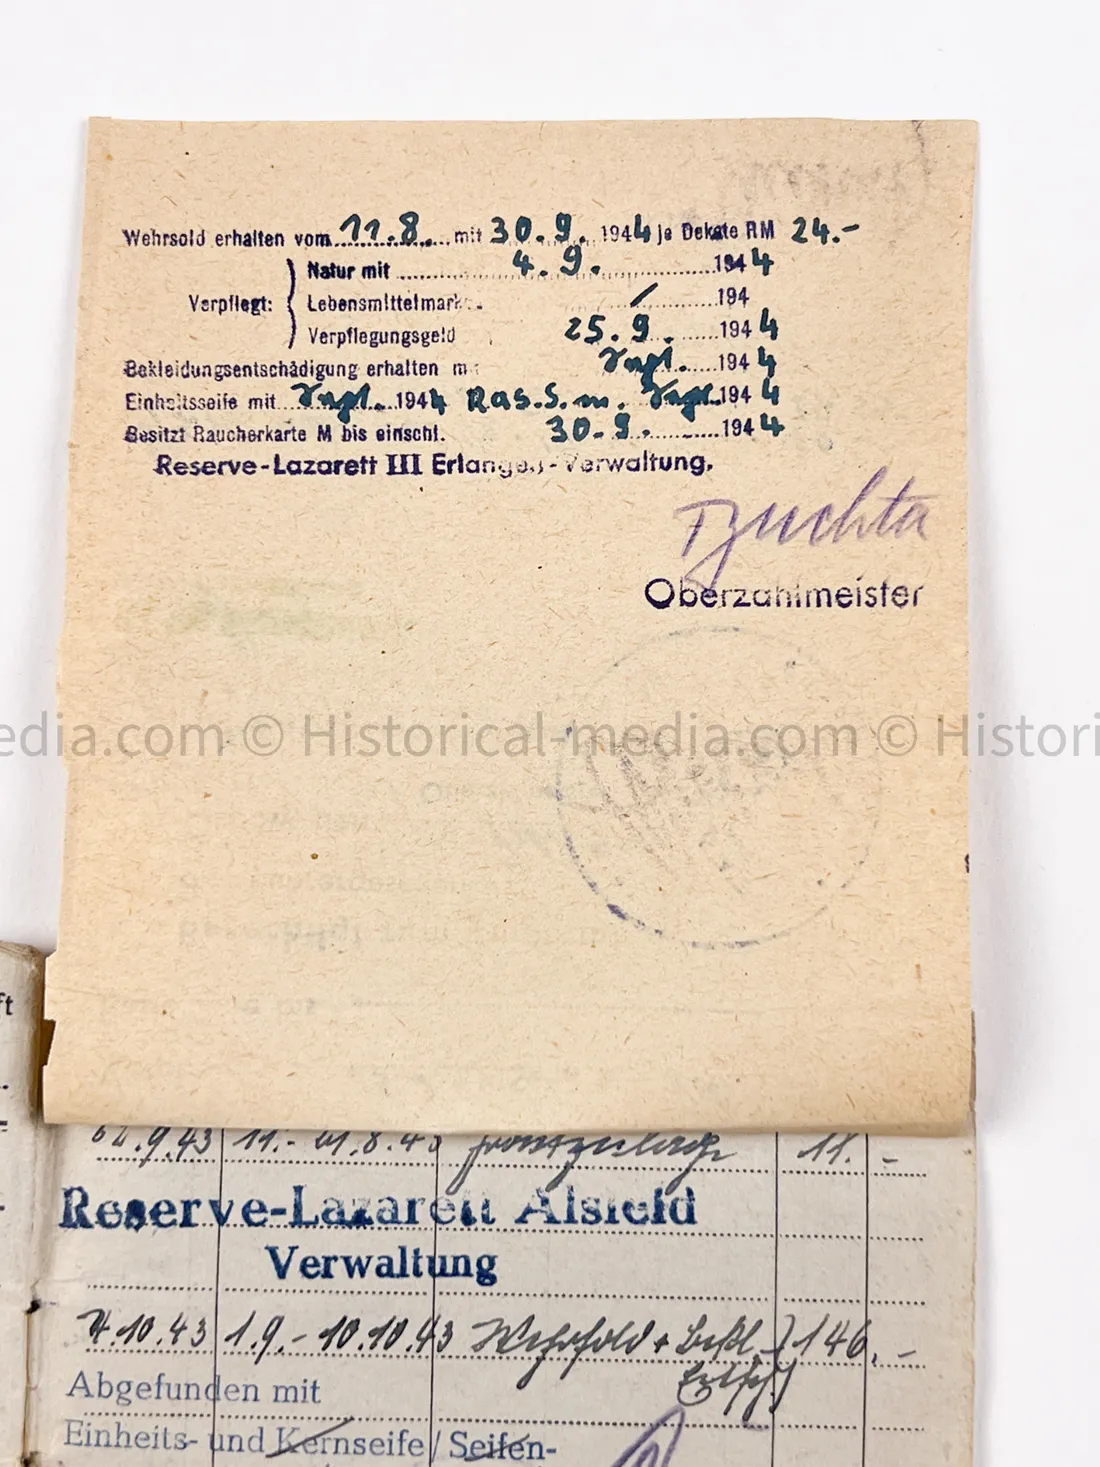 Wehrsold erhalten vom 11.8. mit 30.9. 1944 je Dekade RM 24.-
Natur mit 4.9. 1944
Verpflegt: Lebensmittelmark 194
Verpflegungsgeld 25.9. 1944
Bekleidungsentschädigung erhalten m Sept. 1944
Einheitsseife mit Sept. 1944 Ras.S.m. Sept. 1944
Besitzt Raucherkarte M bis einschl. 30.9. 1944
Reserve-Lazarett III Erlangen-Verwaltung.
Oberzahlmeister
edia.com © Historical-media.com © Histori
ft
.9.43 11.- 8.43 Frontzulage 11. -
Reserve-Lazarett Alsfeld
Verwaltung
10.43 1.9.- 10.10.43 Wehrsold + Bekl. 146,-
Entsch.
Abgefunden mit
Einheits- und Kernseife / Seifen-